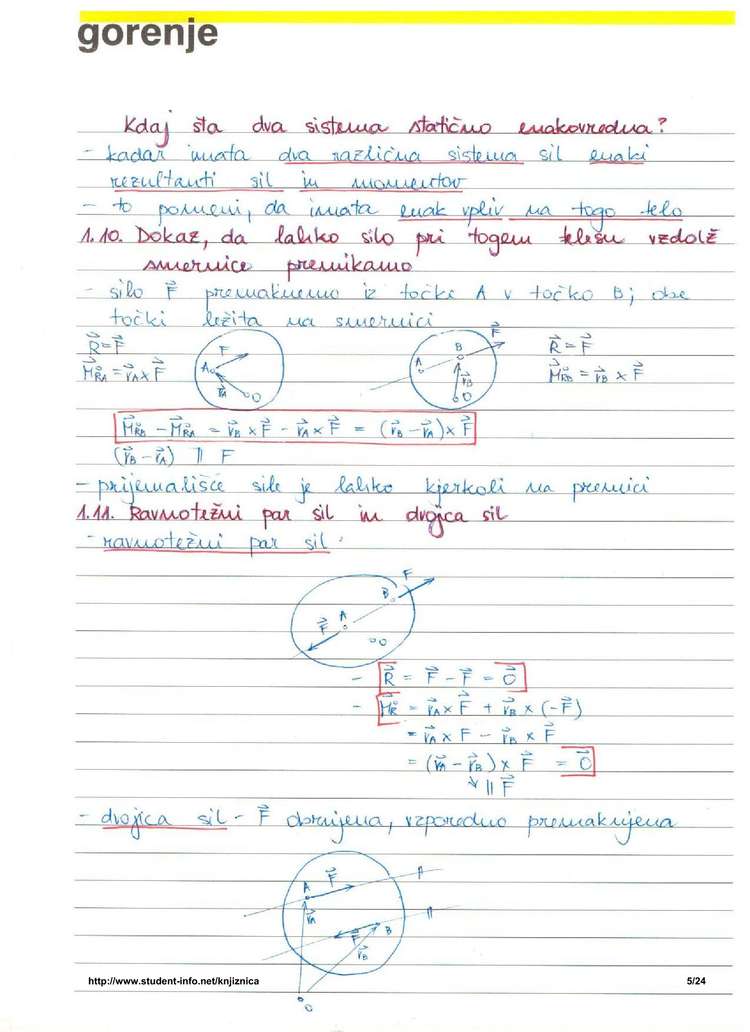 gorenje
Kdaj sta dva sistema statično enakovredna?
- kadar imata dva različna sistema sil enaki
rezultanti sil in momentov
- to pomeni, da imata enak vpliv na togo telo
1.10. Dokaz, da lahko silo pri togem telesu vzdolž
smernice premikamo
- silo F⃗ premaknemo iz točke A v točko B; obe
točki ležita na smernici
R⃗ = F⃗
M⃗RA = r⃗A × F⃗
F
A
r⃗A
O
F⃗
B
A
r⃗B
O
R⃗ = F⃗
M⃗RB = r⃗B × F⃗
M⃗RB − M⃗RA = r⃗B × F⃗ − r⃗A × F⃗ = (r⃗B − r⃗A) × F⃗
(r⃗B − r⃗A) || F
- prijemališče sile je lahko kjerkoli na premici
1.11. Ravnotežni par sil in dvojica sil
- ravnotežni par sil:
F
B
A
F⃗
O
- R⃗ = F⃗ − F⃗ = 0⃗
- M⃗R = r⃗A × F⃗ + r⃗B × (−F⃗)
= r⃗A × F − r⃗B × F⃗
= (r⃗A − r⃗B) × F⃗ = 0⃗
|| F⃗
- dvojica sil - F⃗ obrnjena, vzporedno premaknjena
A
F⃗
r⃗A
F⃗
B
r⃗B
O
http://www.student-info.net/knjiznica
5/24